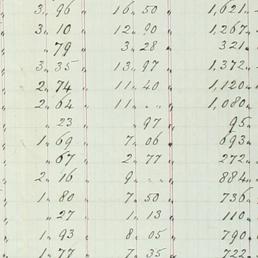 3 „ 96 „ 16 „ 50 „ 1,621 „
3 „ 10 „ 12 „ 90 „ 1,267 „
„ 79 „ 3 „ 28 „ 321 „
3 „ 35 „ 13 „ 97 „ 1,372 „
2 „ 74 „ 11 „ 40 „ 1,120 „
2 „ 64 „ 11 „ „ „ 1,080 „
„ 23 „ „ 97 „ 95 „
1 „ 69 „ 7 „ 06 „ 693 „
„ 67 „ 2 „ 77 „ 272 „
2 „ 16 „ 9 „ „ „ 884 „
1 „ 80 „ 7 „ 50 „ 736 „
„ 27 „ 1 „ 13 „ 110 „
1 „ 93 „ 8 „ 05 „ 790 „
1 „ 77 „ 7 „ 35 „ 722 „